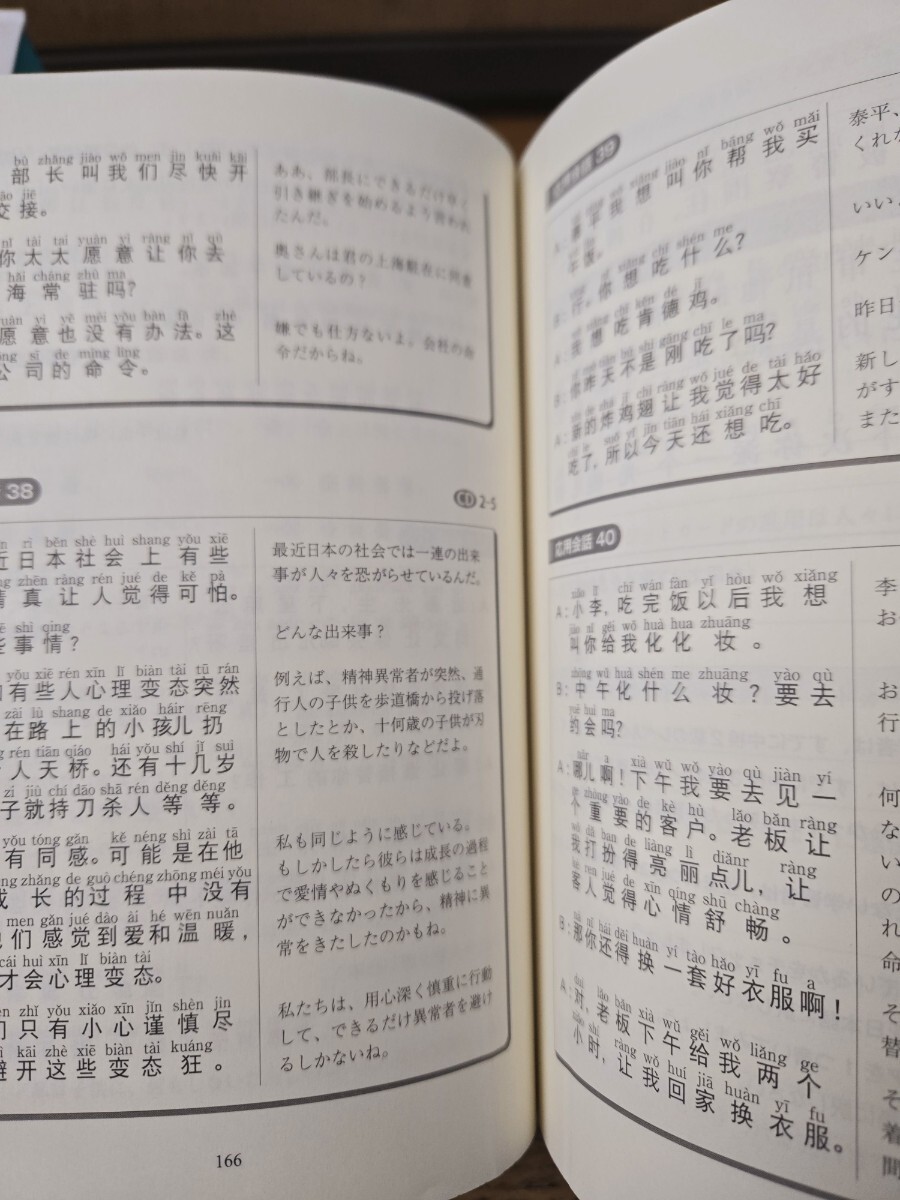 bù zhǎng jiào wǒ men jǐn kuài kāi
部长叫我们尽快开
āo jiē
交接。
nǐ tài tai yuàn yì ràng nǐ qù
你太太愿意让你去
hǎi cháng zhù ma
海常驻吗?
愿意也没有办法。这
ōng sī de mìng lìng
公司的命令。
ああ、部長にできるだけ早く
引き継ぎを始めるよう言われ
たんだ。
奥さんは君の上海駐在に同意
しているの?
嫌でも仕方ないよ。会社の命
令だからね。
38
CD 2-5
rì běn shè huì shang yǒu xiē
近日本社会上有些
zhēn ràng rén jué de kě pà
情真让人觉得可怕。
shì qing
些事情?
yǒu xiē rén xīn lǐ biàn tài tū rán
如有些人心理变态突然
zài lù shang de xiǎo háir rēng
在路上的小孩儿扔
rén tiān qiáo hái yǒu shí jǐ suì
人天桥。还有十几岁
zi jiù chí dāo shā rén děng děng
子就持刀杀人等等。
yǒu tóng gǎn kě néng shì zài tā
有同感。可能是在他
zhǎng de guò chéng zhōng méi yǒu
成长的过程中没有
men gǎn jué dào ài hé wēn nuǎn
他们感觉到爱和温暖,
cái huì xīn lǐ biàn tài
才会心理变态。
zhǐ yǒu xiǎo xīn jǐn shèn jìn
们只有小心谨慎尽
kāi zhè xiē biàn tài kuáng
避开这些变态狂。
最近日本の社会では一連の出来
事が人々を恐がらせているんだ。
どんな出来事?
例えば、精神異常者が突然、通
行人の子供を歩道橋から投げ落
としたとか、十何歳の子供が刃
物で人を殺したりなどだよ。
私も同じように感じている。
もしかしたら彼らは成長の過程
で愛情やぬくもりを感じること
ができなかったから、精神に異
常をきたしたのかもね。
私たちは、用心深く慎重に行動
して、できるだけ異常者を避け
るしかないね。
166
39
xiǎng jiào nǐ bāng wǒ mǎi
泰平我想叫你帮我买
午饭。
xiǎng chī shén me
B:行。你想吃什么?
xiǎng chī kěn dé jī
A:我想吃肯德鸡。
bú shì gāng chī le ma
B:你昨天不是刚吃了吗?
jī chì ràng wǒ jué de tài hǎo
A:新的炸鸡翅让我觉得太好
suǒ yǐ jīn tiān hái xiǎng chī
吃了,所以今天还想吃。
泰平、
くれな
いい。
ケン
昨日
新し
がす
また
応用会話 40
xiǎo lǐ chī wán fàn yǐ hòu wǒ xiǎng
A:小李,吃完饭以后我想
jiào nǐ gěi wǒ huà hua zhuāng
叫你给我化化妆。
zhōng wǔ huà shén me zhuāng yào qù
B:中午化什么妆?要去
yuē huì ma
约会吗?
nǎr a xià wǔ wǒ yào qù jiàn yí
A:哪儿啊!下午我要去见一
ge zhòng yào de kè hù lǎo bǎn ràng
个重要的客户。老板让
wǒ dǎ ban de liàng lì diǎnr ràng
我打扮得亮丽点儿,让
kè ren jué de xīn qíng shū chàng
客人觉得心情舒畅。
nà nǐ hái děi huàn yí tào hǎo yī fu a
B:那你还得换一套好衣服啊!
duì lǎo bǎn xià wǔ gěi wǒ liǎng ge
A:对,老板下午给我两个
xiǎo shí ràng wǒ huí jiā huàn yī fu
小时,让我回家换衣服。
李
お
お
行
何
な
い
の
れ
命
そ
替
そ
着
間